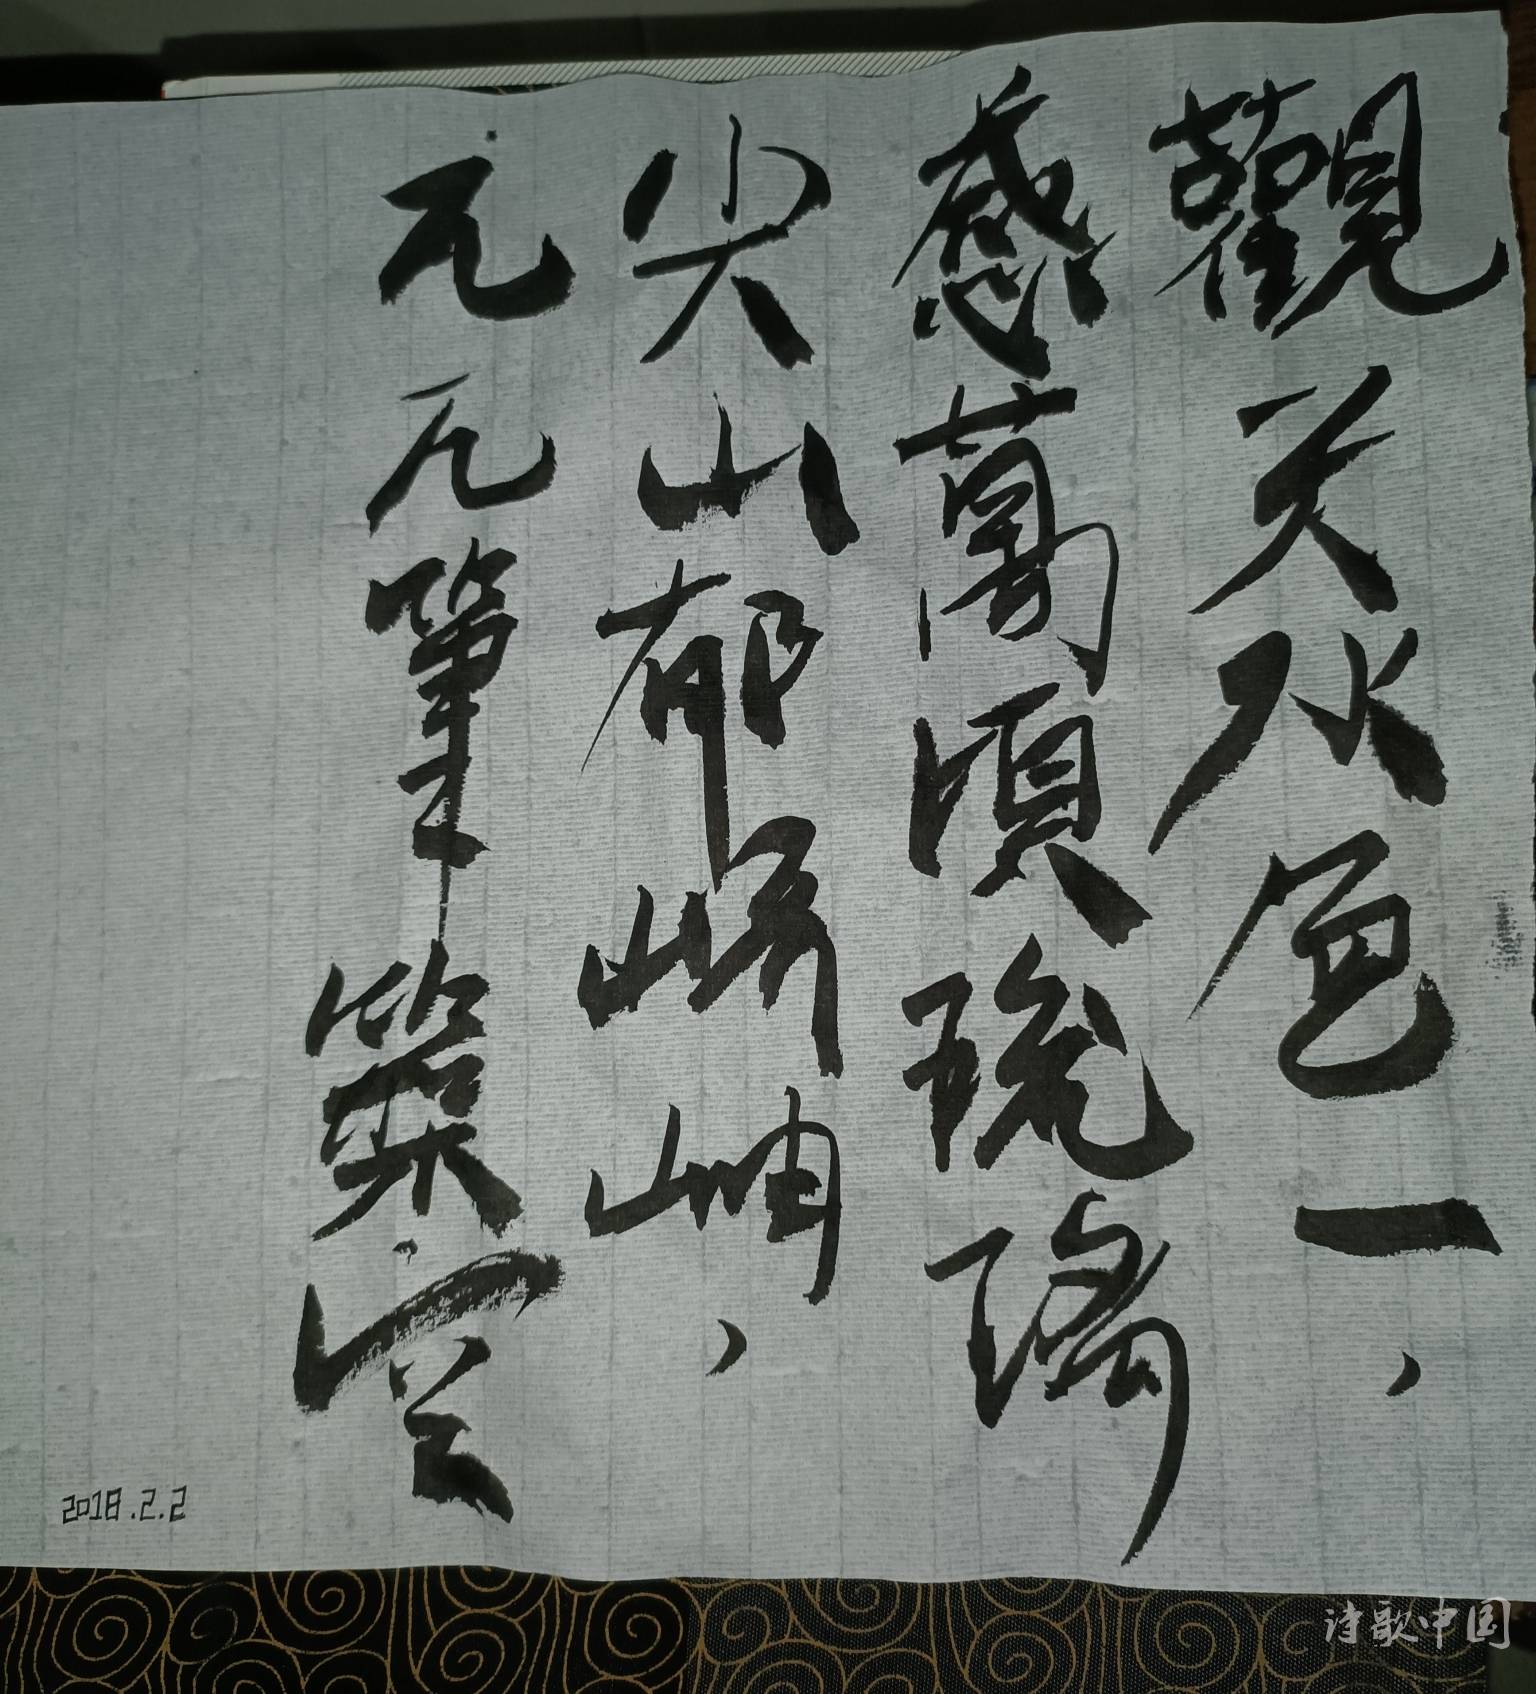 觀天水色一，
感萬頃琉璃
尖山郁崎岫，
元元筆築空
2018.2.2
诗歌中国